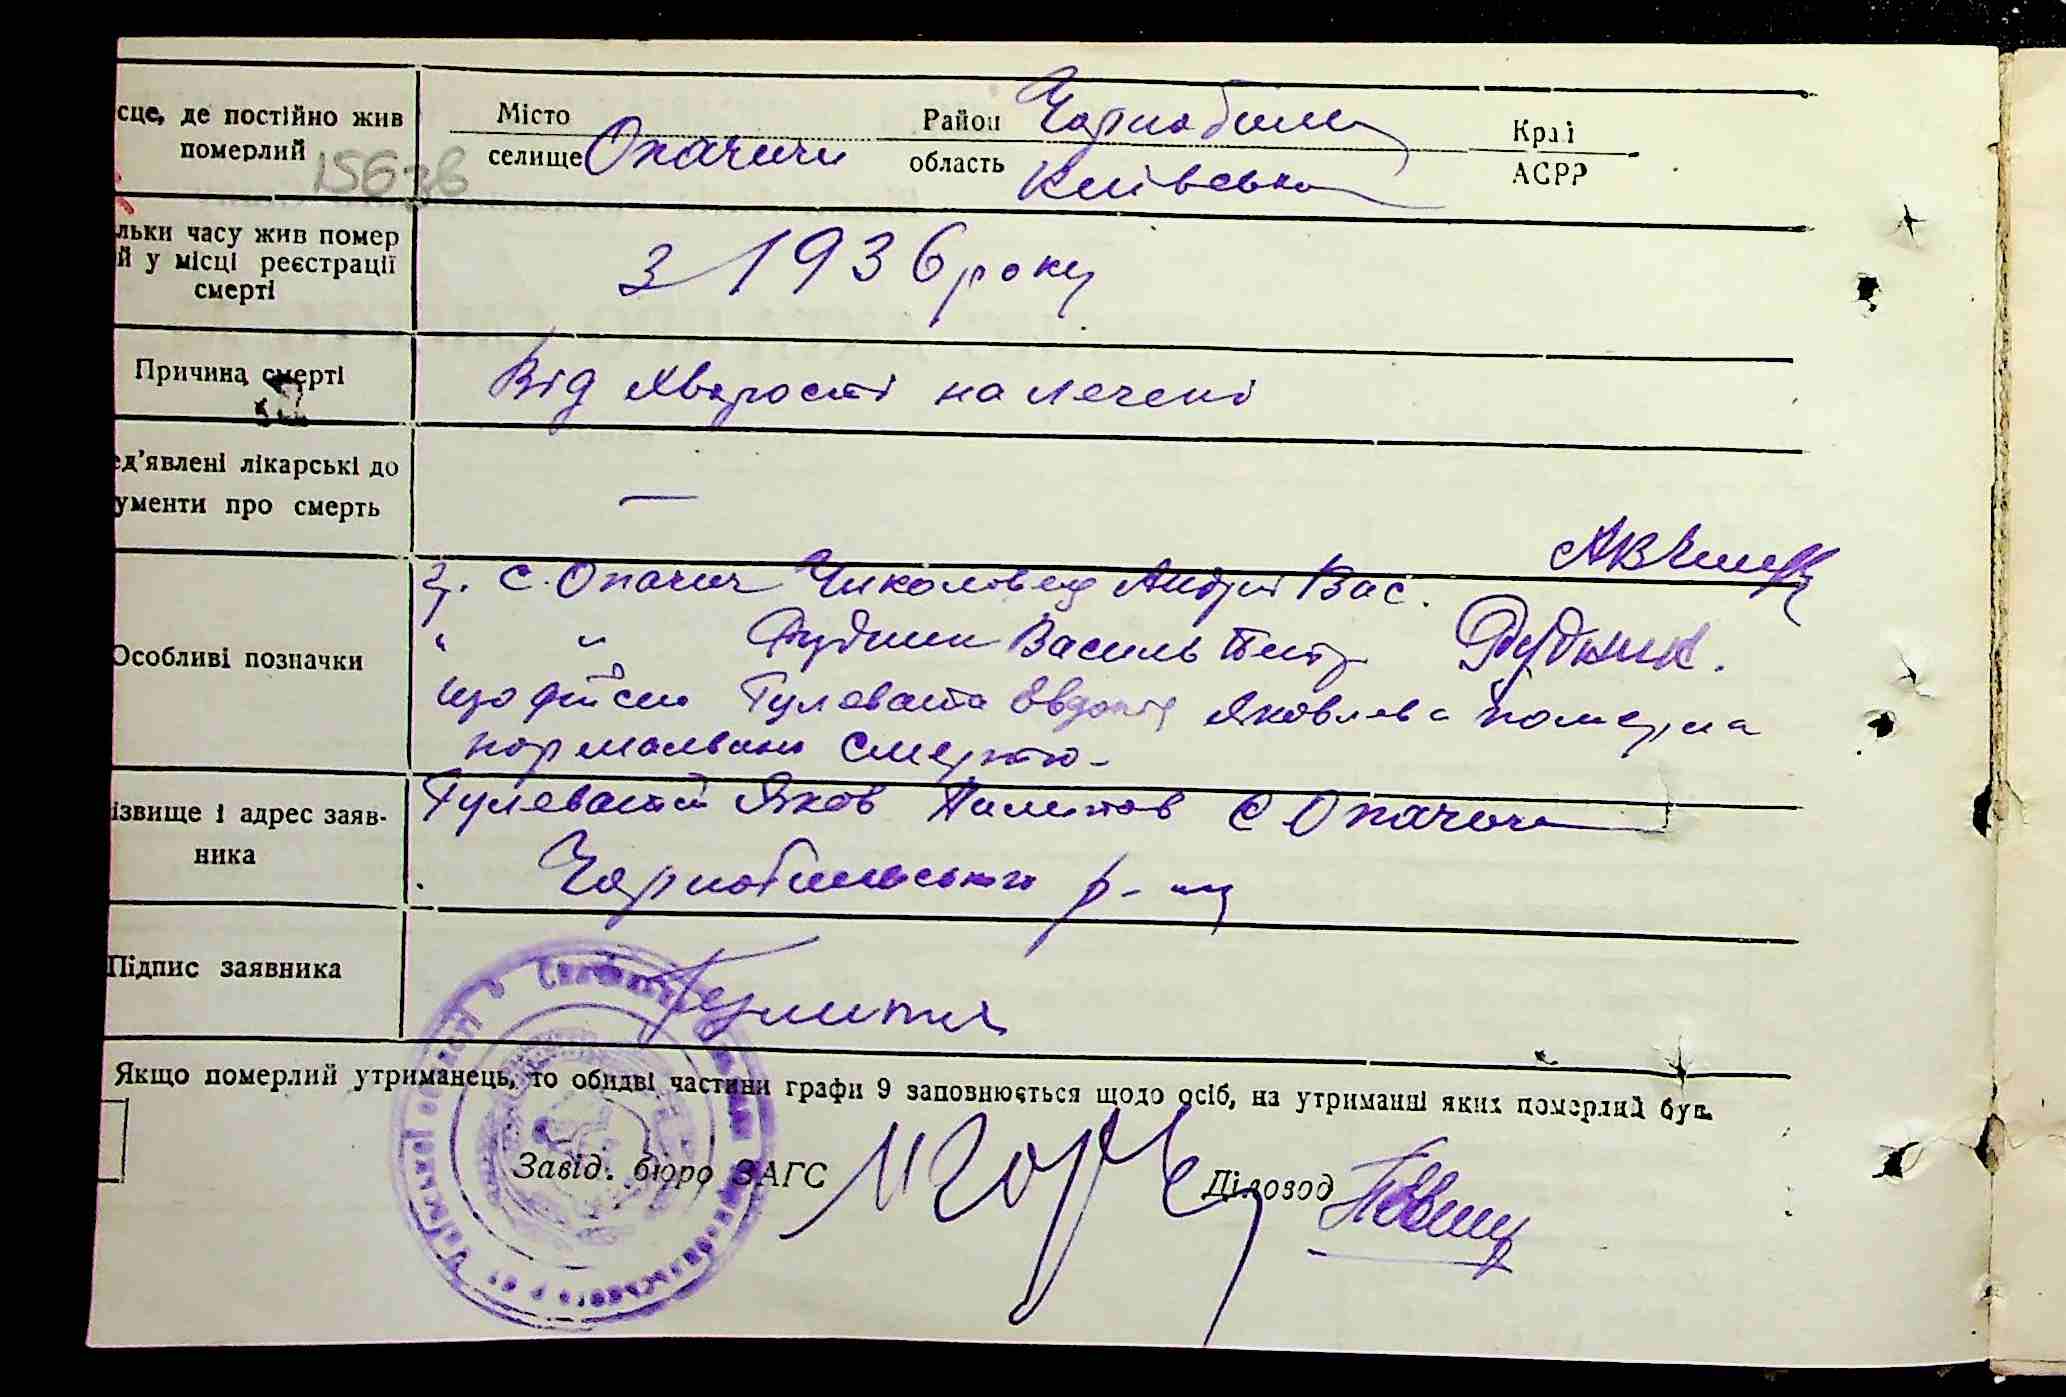 сце, де постійно жив
померлий
15638
Місто
селище Опачичи
Район Чорнобиль
область Київська
Краї
АСРР
льки часу жив помер
й у місці реєстрації
смерті
з 1936 року
Причина смерті
Від хворості на лечені
ед'явлені лікарські до
ументи про смерть
—
Особливі позначки
гр. с. Опачич Андрій Вас.
" " Рудник Василь Петр Рудник.
що дійсно Гулевата Овдотя Яковлева померла
нормально смертю-
ізвище і адрес заяв-
ника
Гулеватий Яков Пилипов С Опачичи
Чорнобильського р-ну
Підпис заявника
Якщо померлий утриманець, то обидві частини графи 9 заповнюється щодо осіб, на утриманні яких померлий був.
Завід. бюро ЗАГС
Діловод